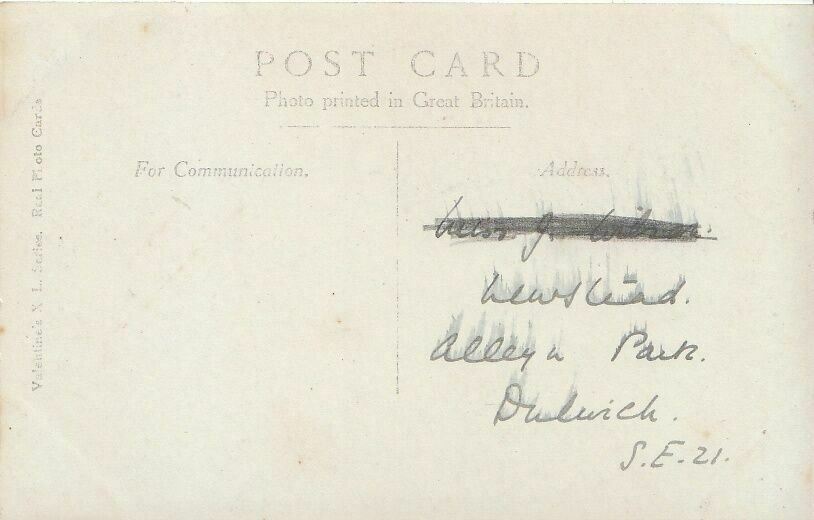 POST CARD
Photo printed in Great Britain.
For Communication.
Address.
Miss J.
Newstead.
Alleyn Park.
Dulwich.
S.E.21.
Valentine's X L Series. Real Photo Cards